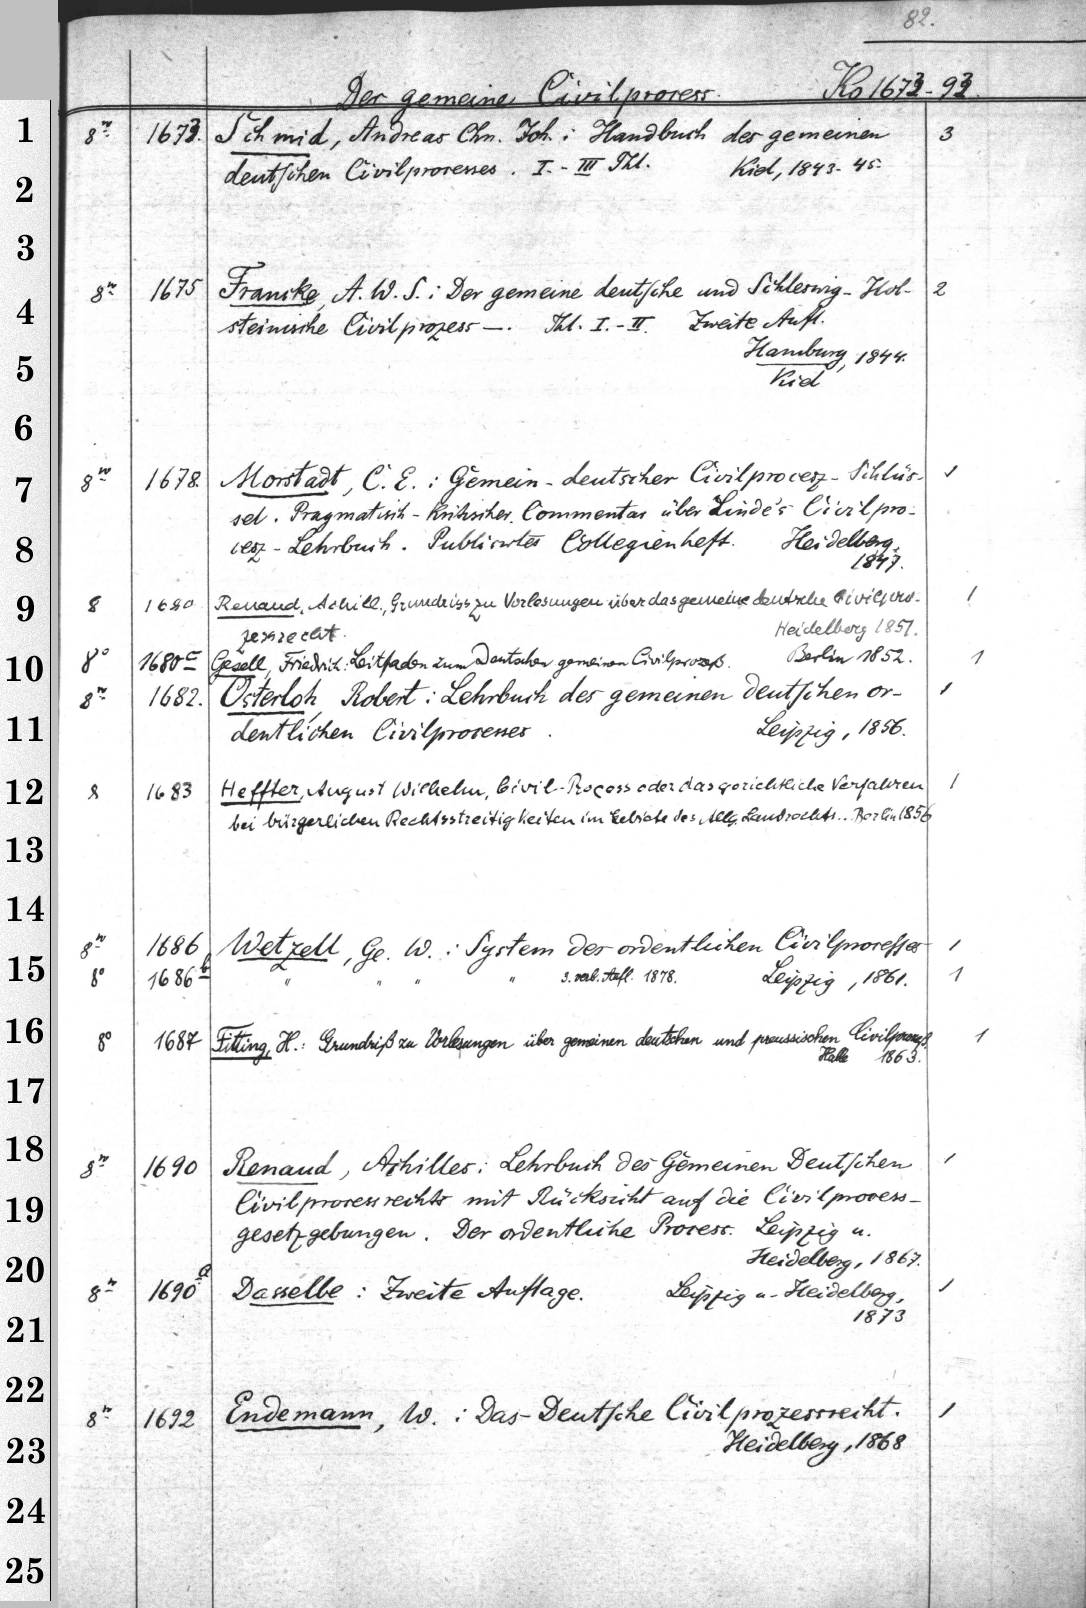 82.
Der gemeine Civilprocess. Ko 1673-93.
1 8º 1673. Schmid, Andreas Chn. Joh.: Handbuch des gemeinen 3
2 deutschen Civilprocesses. I.-III Thl. Kiel, 1843-45.
3
4 8º 1675 Francke, A. W. S.: Der gemeine deutsche und Schleswig-Hol- 2
steinische Civilprozess —. Thl. I.-II. Zweite Aufl.
5 Hamburg, 1844.
Kiel
6
7 8º 1678. Morstadt, C. E.: Gemein-deutscher Civilprocesz-Schlüs- 1
sel. Pragmatisch-kritischer Commentar über Linde's Civilpro-
8 cesz-Lehrbuch. Publicirtes Collegienheft. Heidelberg,
1847.
9 8 1680 Renaud, Achill., Grundriss zu Vorlesungen über das gemeine deutsche Civilpro- 1
zessrecht. Heidelberg 1851.
10 8º 1680c Gesell, Friedrich: Leitfaden zum Deutschen gemeinen Civilprozeß. Berlin 1852. 1
8º 1682. Osterloh, Robert: Lehrbuch des gemeinen deutschen or- 1
11 dentlichen Civilprocesses. Leipzig, 1856.
12 8 1683 Heffter, August Wilhelm, Civil-Process oder das gerichtliche Verfahren 1
bei bürgerlichen Rechtsstreitigkeiten im Gebiete des Allg. Landrechts.. Berlin 1856
13
14
8º 1686 Wetzell, Ge. W.: System des ordentlichen Civilprocesses 1
15 8º 1686b " " " " 3. verb. Aufl. 1878. Leipzig, 1861. 1
16 8º 1687 Fitting, H.: Grundriß zu Vorlesungen über gemeinen deutschen und preussischen Civilprozeß, 1
Halle 1863.
17
18 8º 1690 Renaud, Achilles: Lehrbuch des Gemeinen Deutschen 1
19 Civilprocessrechts mit Rücksicht auf die Civilprocess-
gesetzgebungen. Der ordentliche Process. Leipzig u.
20 Heidelberg, 1867.
8º 1690a Dasselbe: Zweite Auflage. Leipzig u. Heidelberg, 1
21 1873
22 8º 1692 Endemann, W.: Das Deutsche Civilprozessrecht. 1
23 Heidelberg, 1868
24
25